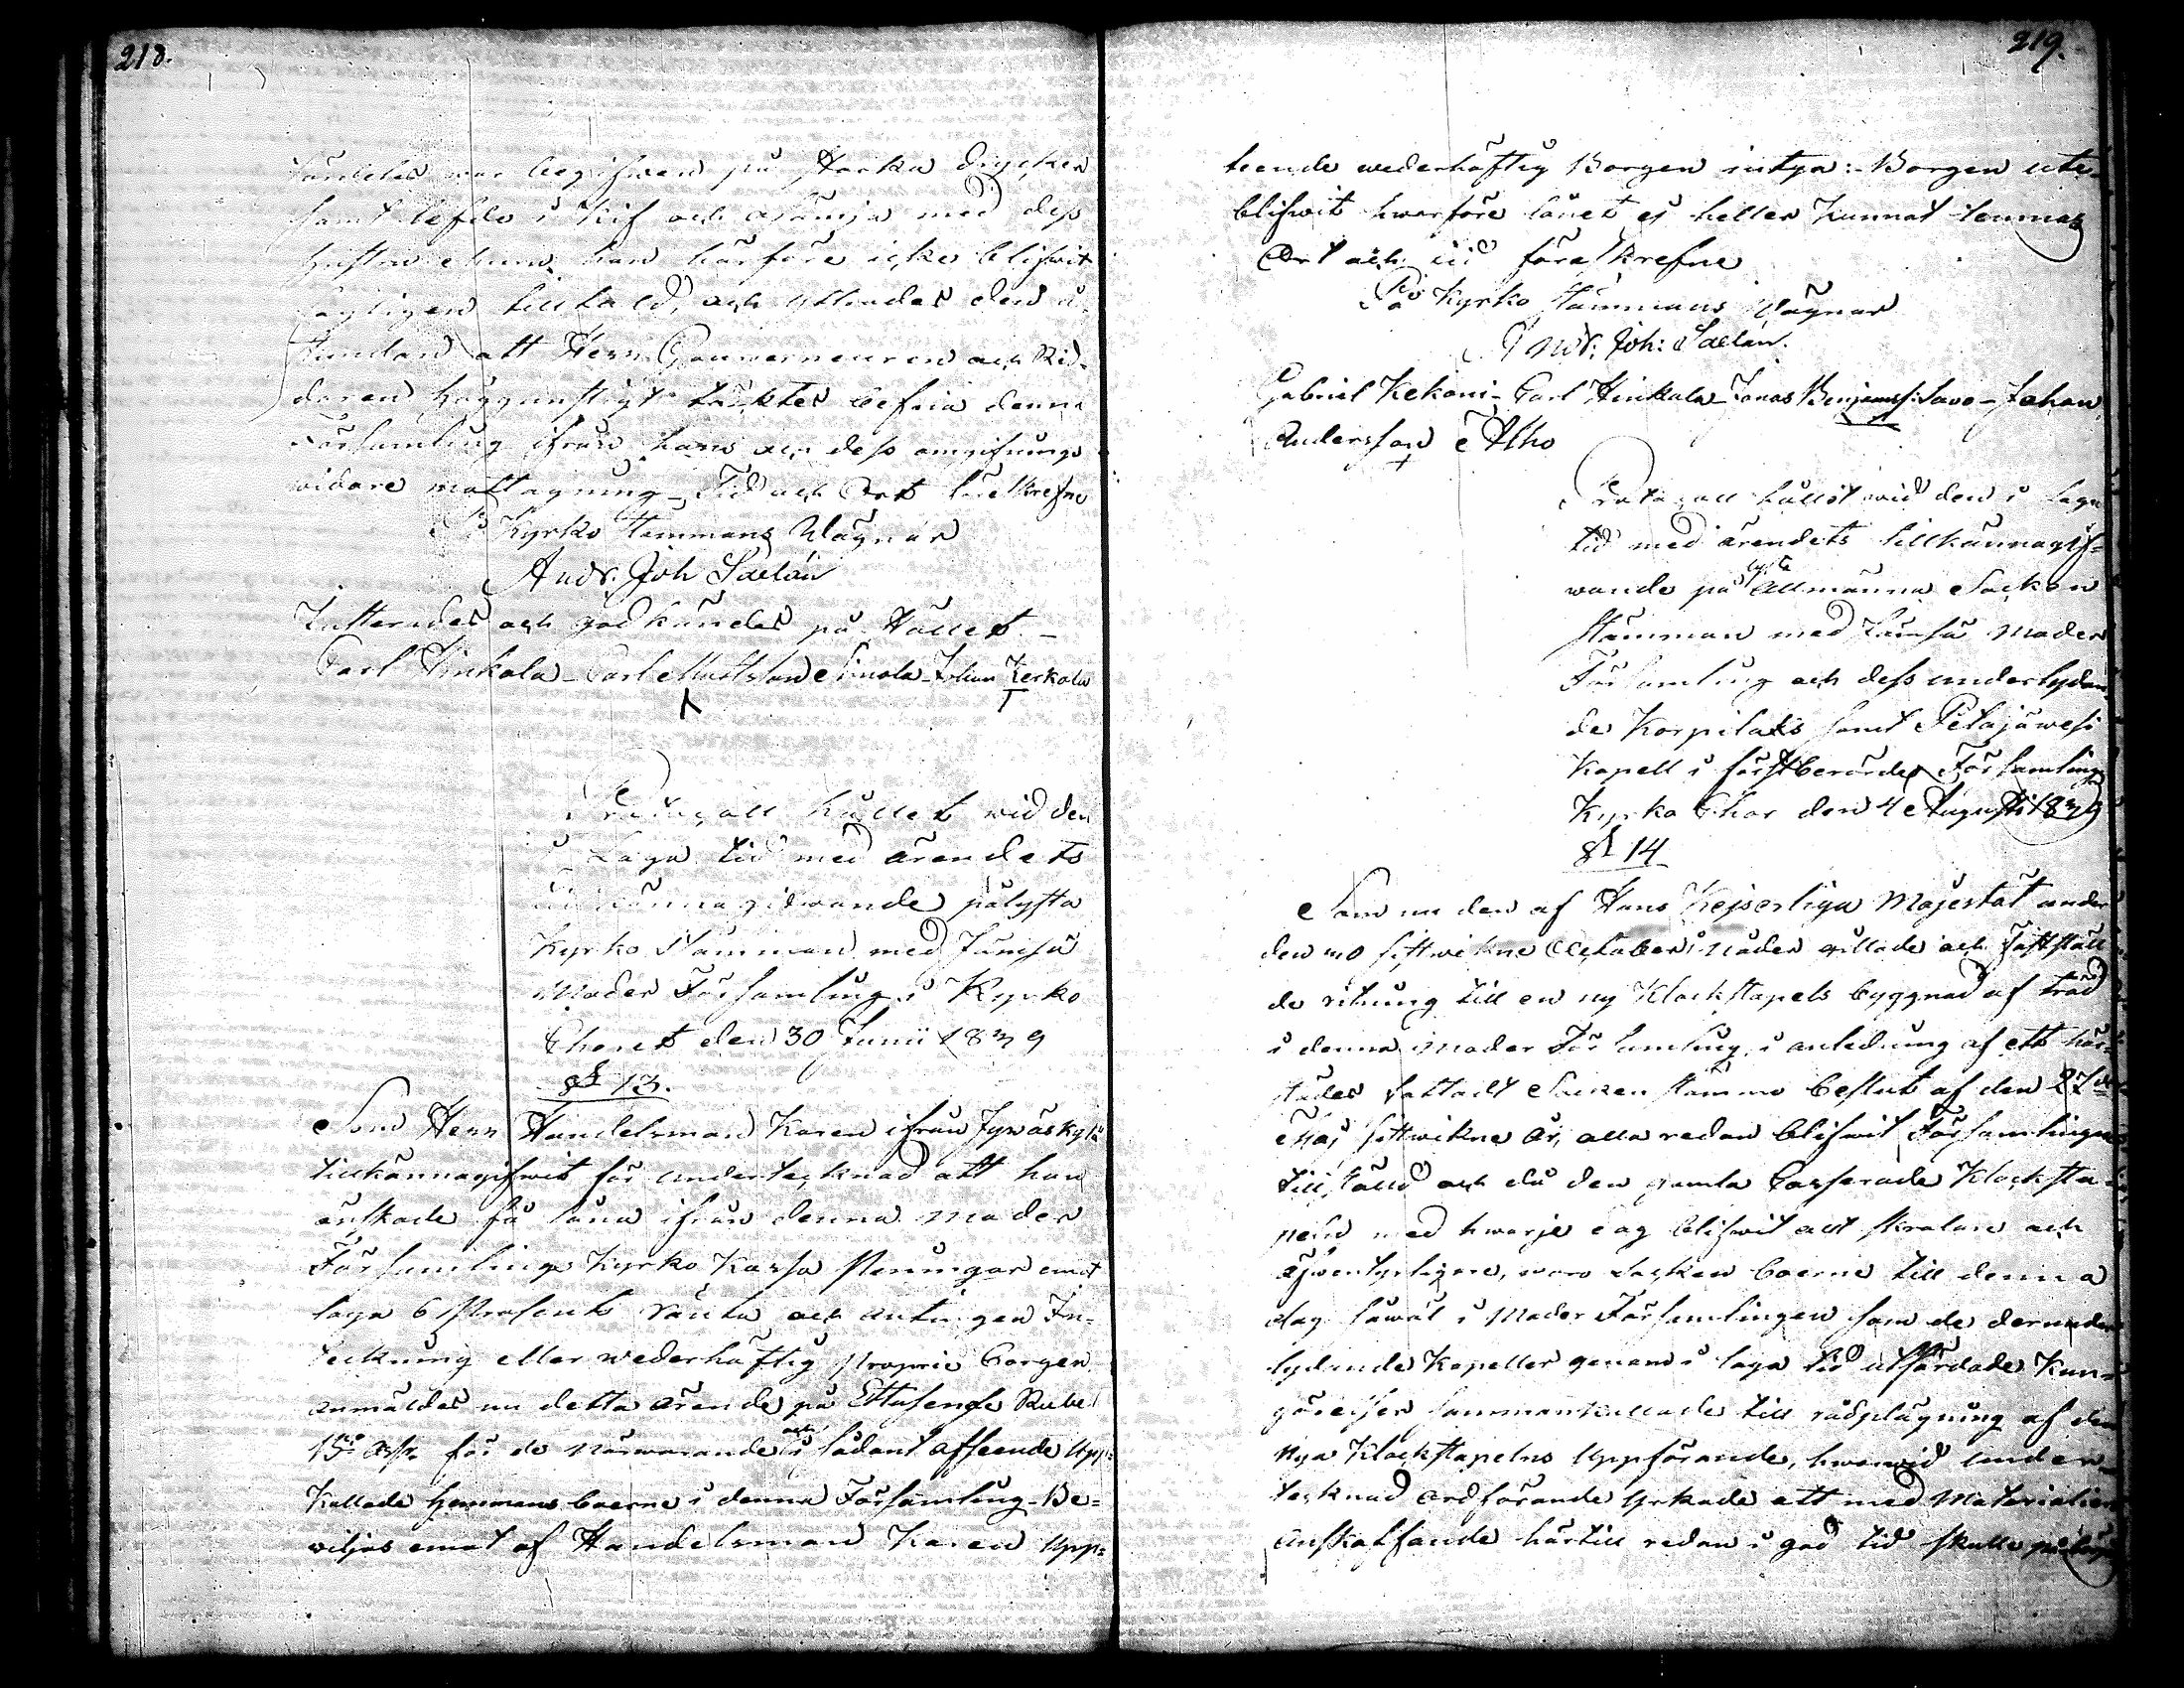 218.
ländes war begifwen på starka drycker
samt lefde i Kif och osämja med dess
hustru ehuru han härföre icke blifwit
lagligen tilltald, och yttrades den ö
stundan att Herr Gouverneuren och Rid-
daren höggunstigt täcktes befria denna
Församling ifrån hans och dess omgifnings
widare mottagning – Tid och Ort föreskrefne
På Kyrko Stemmans Wägnar
Andr. Joh Saelán
Justerades och godkändes på stället –
Carl Hinkola – Carl Mattsson Simola – Johan Kerkola
Protocoll hållet wid den
i Laga tid med ärendets
tillkännagifwande pålysta
Kyrko Stämman med Jämsä
Moder Församling i Kyrko
Choret den 30 Junii 1839
§ 13.
Som Herr Handelsman Karen ifrån Jywäskylä
tillkännagifwit för undertecknad att han
önskade få låna ifrån denna Moder
Församlings Kyrko Kassa Penningar emot
laga 6 Procent ränta och antingen In-
teckning eller wederhäftig proprie borgen
anmäldes nu detta ärende på Ettusende Rubel
B:co Ass. för de närwarande och i sådant afseende Upp-
kallade hemmans boerne i denna Församling – Be-
wiljas emot af Handelsman Karen Upp-
219.
teende wederhäftig Borgen intyg: Borgen ute-
blifwit hwarföre lånet ej heller kunnat lemnas
Ort och tid föreskrefne
På Kyrko Stämmans Wägnar
Andr. Joh: Saelán.
Gabriel Kekoni – Carl Hinkola – Jonas Benjamss: Savo – Johan
Andersson Alho
Protocoll hållit wid den i laga
tid med ärendets tillkännagif-
wande på lysta Allmänna Socken
stämman med Jämsä Moder
Församling och dess underlydan-
de Korpilax samt Petäjäwesi
Kapell i förstberörde Församlings
Kyrko Chor den 4 Augusti 1839
§ 14
Som nu den af Hans Kejserliga Majestät under
den 10 sistwikne October i Nåder gillade och Fastställ-
de ritning till en ny Klockstapels byggnad af träd
i denna Moder Församling, i anledning af ett här-
städes fattadt Socken stämmo beslut af den 27de
Maj sistwikne år, allaredan blifwit Församlingen
tillställd och då den gamla Casserade Klocksta-
peln med hwarje dag blifwit allt skralare och
äfwentyrligare, woro Socken boerne till denna
dag såwäl i Moder Församlingen som de derunder
lydande Kapeller genom i laga tid utfärdade Kun-
görelser sammankallade till rådplägning af den
Nya Klockstapelns Uppförande, hwarwid under-
tecknad ordförande yrkade att med Materialiers
Anskaffande härtill redan i god tid skulle